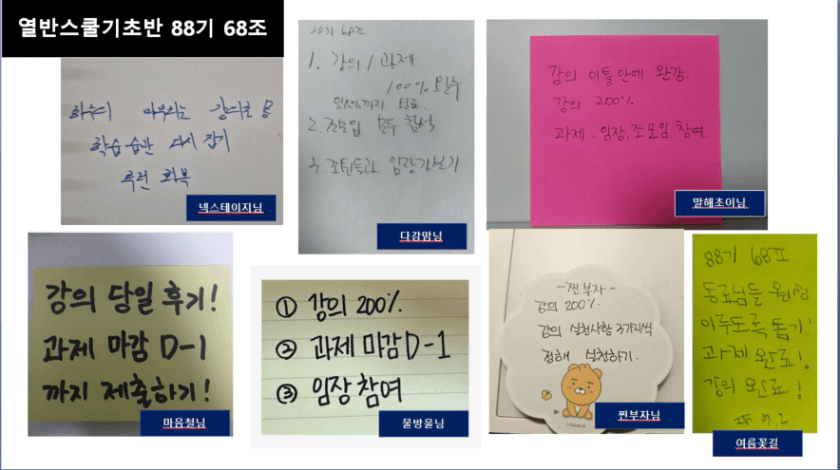 열반스쿨기초반 88기 68조
하루의 마무리는 강의로
학습 습관 다시 잡기
루틴 회복
넥스테이지님
88기 68조
1. 강의 / 과제
100% 완수
완료
2. 조모임 모두 참석
3. 조원들과 임장가보기
다강맘님
강의 이틀 안에 완강.
강의 200%
과제. 임장, 조모임 참여.
말해초이님
강의 당일 후기!
과제 마감 D-1
까지 제출하기!
마음철님
① 강의 200%
② 과제 마감 D-1
③ 임장 참여
물방울님
-찐부자-
강의 200%
강의 실천사항 3가지씩
정해 실천하기.
찐부자님
88기 68조
동료님들 원씽
이루도록 돕기!
과제 완료!
강의 완료!
여름꽃길